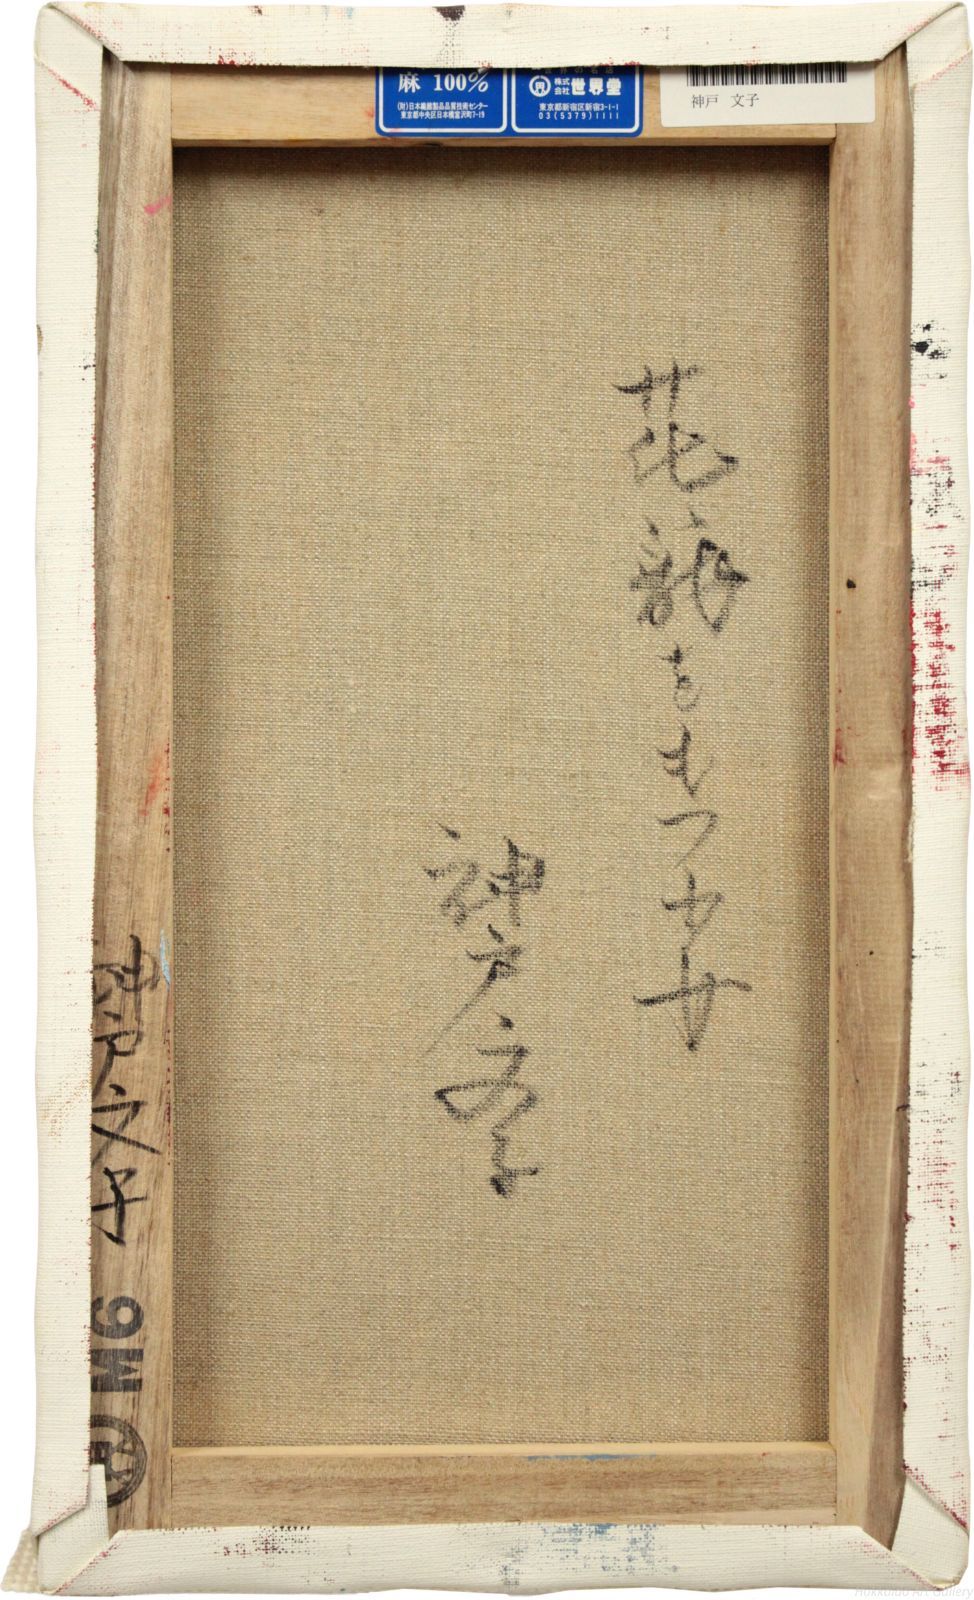 麻 100%
(財)日本繊維製品品質技術センター
東京都中央区日本橋富沢町7-19
世界の名店
株式会社 世界堂
東京都新宿区新宿3-1-1
03(5379)1111
神戸 文子
花籠をもつ少女
神戸文子
神戸文子
9M
Hokkaido Art Gallery